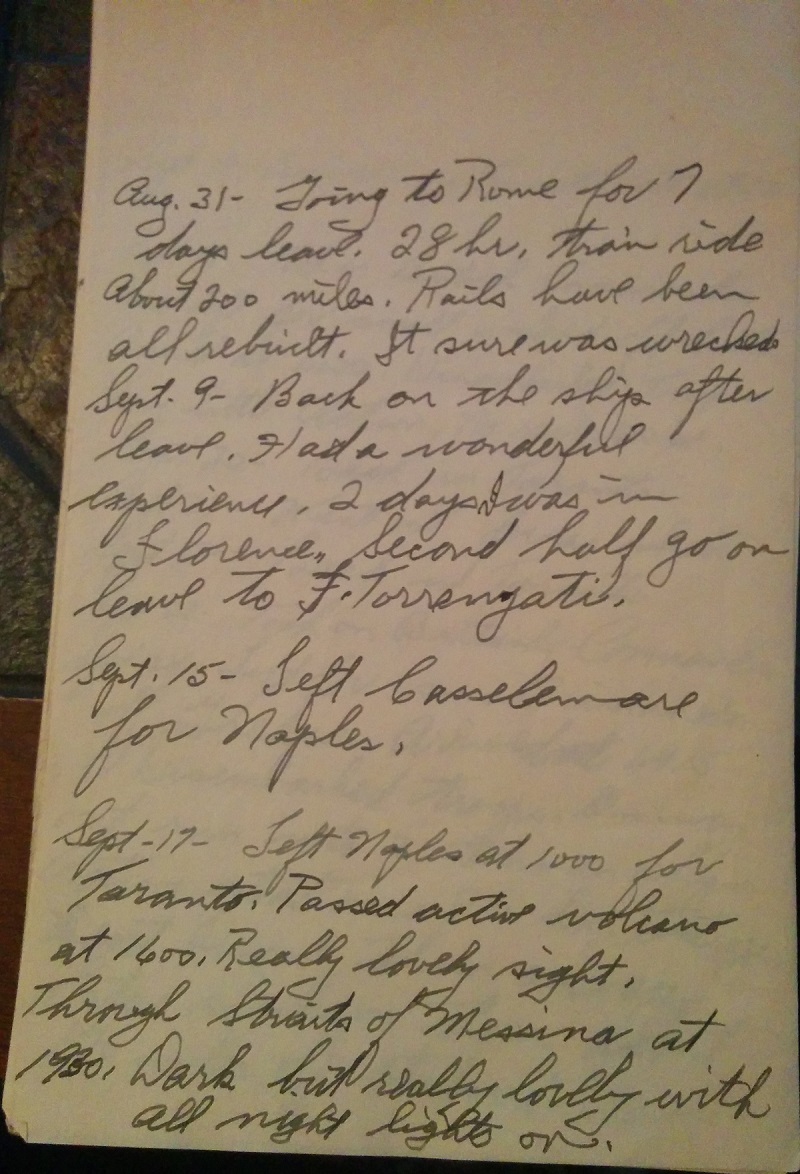 Aug. 31- Going to Rome for 7
days leave. 28 hr. train ride
About 200 miles. Rails have been
all rebuilt. It sure was wrecked
Sept. 9- Back on the ship after
leave. Had a wonderful
experience. 2 days I was in
Florence,, Second half go on
leave to F. Torrengati.
Sept. 15- Left Casselemare
for Naples.
Sept-17- Left Naples at 1000 for
Taranto. Passed active volcano
at 1600. Really lovely sight.
Through Straits of Messina at
1930. Dark but really lovely with
all night lights on.